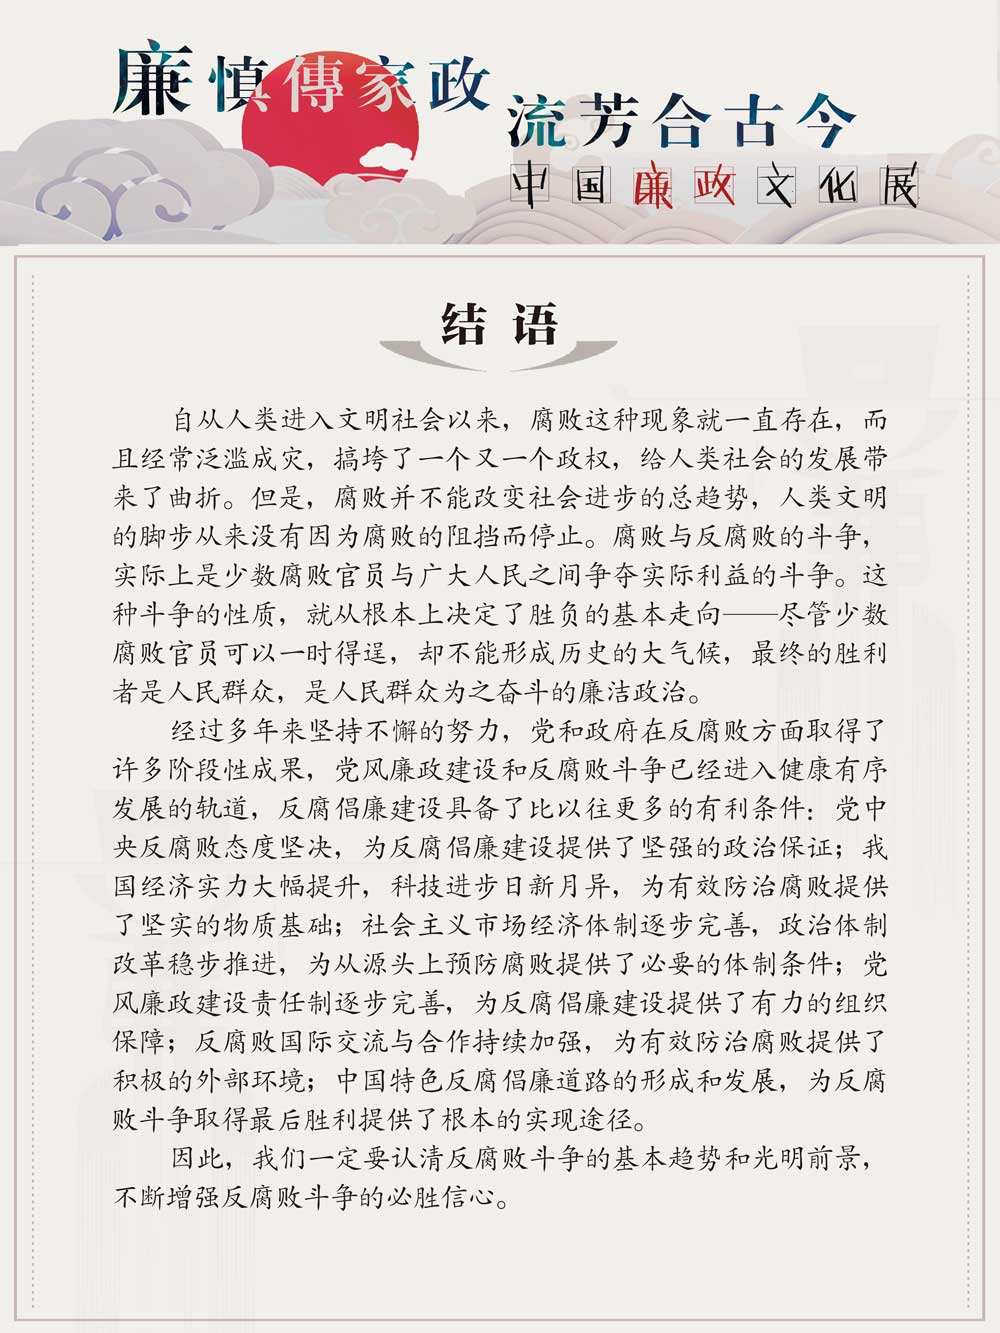 廉慎傳家政
流芳合古今
中国廉政文化展
结语
自从人类进入文明社会以来，腐败这种现象就一直存在，而
且经常泛滥成灾，搞垮了一个又一个政权，给人类社会的发展带
来了曲折。但是，腐败并不能改变社会进步的总趋势，人类文明
的脚步从来没有因为腐败的阻挡而停止。腐败与反腐败的斗争，
实际上是少数腐败官员与广大人民之间争夺实际利益的斗争。这
种斗争的性质，就从根本上决定了胜负的基本走向——尽管少数
腐败官员可以一时得逞，却不能形成历史的大气候，最终的胜利
者是人民群众，是人民群众为之奋斗的廉洁政治。
经过多年来坚持不懈的努力，党和政府在反腐败方面取得了
许多阶段性成果，党风廉政建设和反腐败斗争已经进入健康有序
发展的轨道，反腐倡廉建设具备了比以往更多的有利条件：党中
央反腐败态度坚决，为反腐倡廉建设提供了坚强的政治保证；我
国经济实力大幅提升，科技进步日新月异，为有效防治腐败提供
了坚实的物质基础；社会主义市场经济体制逐步完善，政治体制
改革稳步推进，为从源头上预防腐败提供了必要的体制条件；党
风廉政建设责任制逐步完善，为反腐倡廉建设提供了有力的组织
保障；反腐败国际交流与合作持续加强，为有效防治腐败提供了
积极的外部环境；中国特色反腐倡廉道路的形成和发展，为反腐
败斗争取得最后胜利提供了根本的实现途径。
因此，我们一定要认清反腐败斗争的基本趋势和光明前景，
不断增强反腐败斗争的必胜信心。